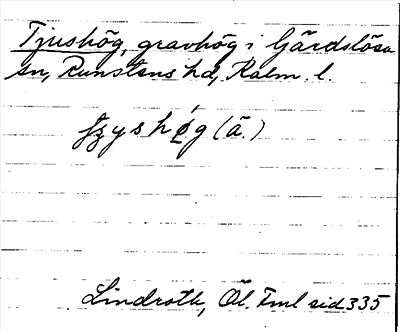 Tjushög, gravhög i Gärdslösa
sn, Runstens hd, Kalm. l.
(ä.)
Lindroth, Öl. Fml sid 335